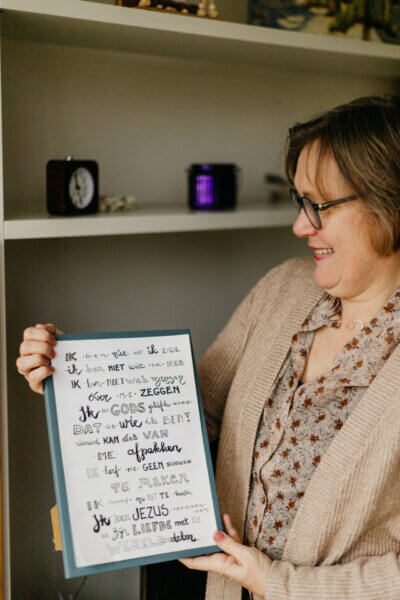 IK BEN niet wat ik DOE
ik ben NIET wat IK HEB
IK bEN NIET wat mensen
over ME ZEGGEN
Ik ben GODS geliefde kind
DAT is wie ik BEN!
niemand KAN dat VAN
ME afpakken
IK hoef me GEEN zorgen
TE maken
IK hoef me NIET te
Ik kan JEZUS
en zijn LIEFDE met de
WERELD delen